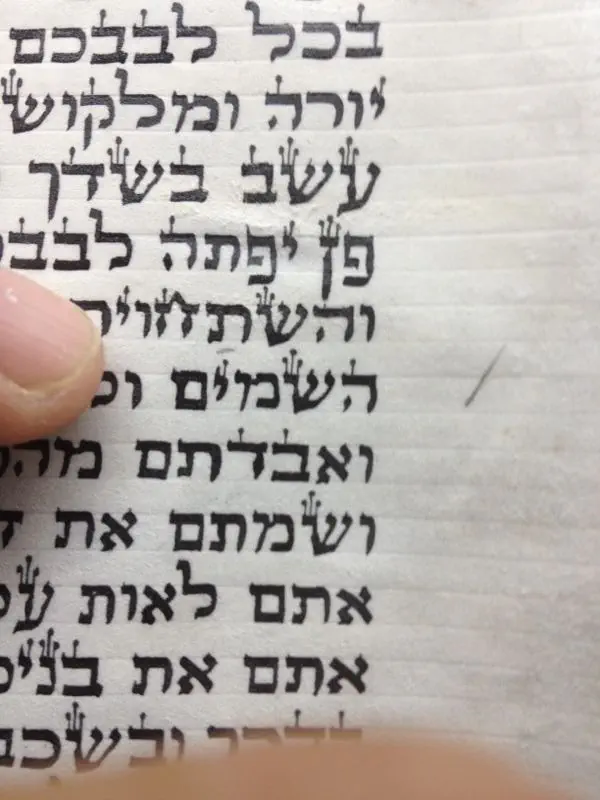 בכל לבבכם
יורה ומלקוש
עשב בשדך
פן יפתה
והשתחויתם
השמים
ואבדתם
ושמתם את
אתם לאות
אתם את
ובשכבך